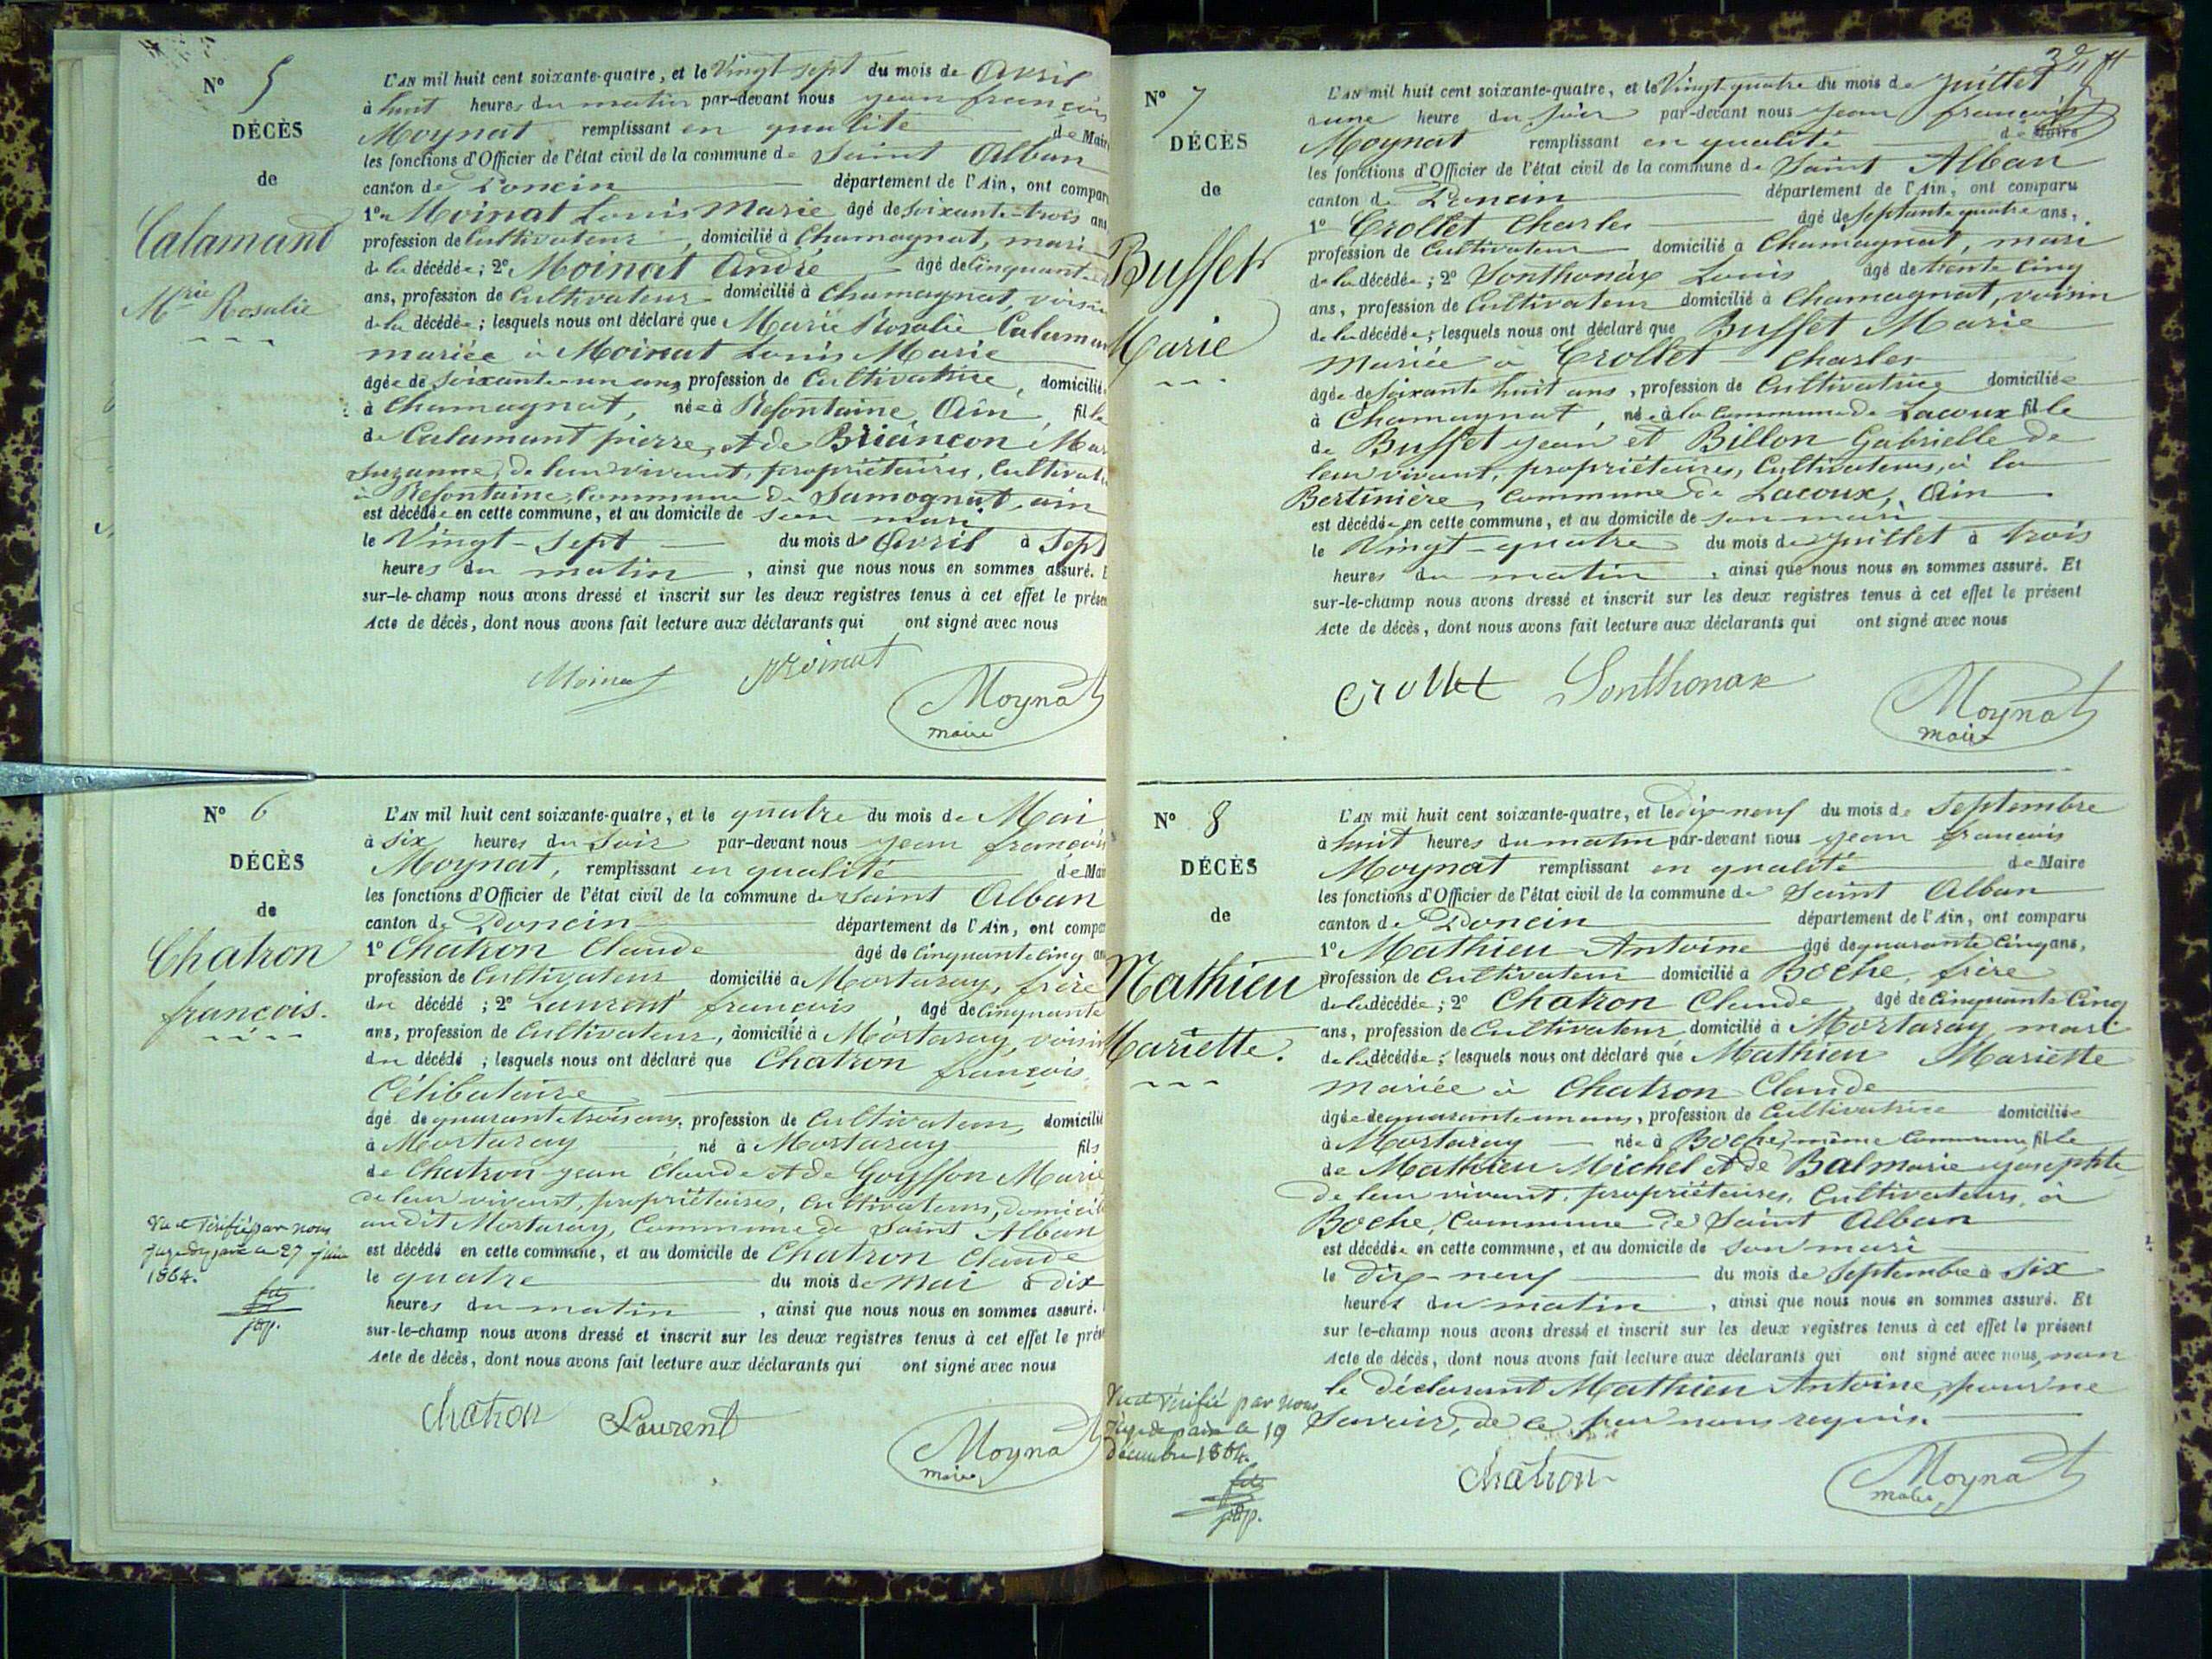 N° 5
DÉCÈS
de
Calamand
Mrie Rosalie
L'AN mil huit cent soixante-quatre, et le Vingt-sept du mois de Avril
à huit heures du matin par-devant nous jean françois
Moynat remplissant en qualité de Maire
les fonctions d'Officier de l'état civil de la commune de Saint Alban
canton de Poncin département de l'Ain, ont compar
1° Moinat Louis Marie âgé de soixante-trois ans
profession de Cultivateur, domicilié à Chamagnat, mari
de la décédée; 2° Moinat André âgé de cinquante
ans, profession de Cultivateur domicilié à Chamagnat, voisin
de la décédée; lesquels nous ont déclaré que Marie Rosalie Calaman
mariée à Moinat Louis Marie
âgée de soixante-un ans, profession de Cultivatrice, domicilié
à Chamagnat, née à Refontaine, Ain, fille
de Calamant pierre, et de Briançon Mar
Suzanne, de leur vivant, propriétaires, Cultivat
à Refontaine, Commune de Samognat, ain
est décédée en cette commune, et au domicile de son mari
le Vingt-Sept du mois d'Avril à Sept
heures du matin, ainsi que nous nous en sommes assuré. E
sur-le-champ nous avons dressé et inscrit sur les deux registres tenus à cet effet le présen
Acte de décès, dont nous avons fait lecture aux déclarants qui ont signé avec nous
Moinat Moinat
Moynat
maire
N° 6
DÉCÈS
de
Chatron
françois.
L'AN mil huit cent soixante-quatre, et le quatre du mois de Mai
à six heures du Soir par-devant nous jean françois
Moynat, remplissant en qualité de Mai
les fonctions d'Officier de l'état civil de la commune de Saint Alban
canton de Poncin département de l'Ain, ont compar
1° Chatron Claude âgé de cinquante cinq an
profession de Cultivateur domicilié à Mortaray, frère
du décédé; 2° Laurent françois, âgé de cinquante
ans, profession de Cultivateur, domicilié à Mortaray, voisin
du décédé; lesquels nous ont déclaré que Chatron françois
Célibataire
âgé de quarante trois ans, profession de Cultivateur, domicilié
à Mortaray né à Mortaray fils
de Chatron jean Claude et de Goyffon Marie
de leur vivant, propriétaires, Cultivateurs, domicil
audit Mortaray, Commune de Saint Alban
est décédé en cette commune, et au domicile de Chatron Claude
le quatre du mois de mai à dix
heures du matin, ainsi que nous nous en sommes assuré.
sur-le-champ nous avons dressé et inscrit sur les deux registres tenus à cet effet le prés
Acte de décès, dont nous avons fait lecture aux déclarants qui ont signé avec nous
Vu et Vérifié par nous
juge de paix le 27 juin
1864.
jdp.
chatron Laurent
Moynat
maire
N° 7
DÉCÈS
de
Buffet
Marie
L'AN mil huit cent soixante-quatre, et le Vingt-quatre du mois de juillet
à une heure du Soir par-devant nous jean françois
Moynat remplissant en qualité de Maire
les fonctions d'Officier de l'état civil de la commune de Saint Alban
canton de Poncin département de l'Ain, ont comparu
1° Crollet Charles âgé de septante quatre ans,
profession de Cultivateur domicilié à Chamagnat, mari
de la décédée; 2° Sonthonax Louis âgé de trente cinq
ans, profession de Cultivateur domicilié à Chamagnat, voisin
de la décédée; lesquels nous ont déclaré que Buffet Marie
Mariée à Crollet Charles
âgée de soixante huit ans, profession de Cultivatrice domiciliée
à Chamagnat, née à la Commune de Lacoux fille
de Buffet jean et Billon Gabrielle de
leur vivant, propriétaires, Cultivateurs, à la
Bertinière, Commune de Lacoux, Ain
est décédée en cette commune, et au domicile de son mari
le Vingt-quatre du mois de juillet à trois
heures du matin, ainsi que nous nous en sommes assuré. Et
sur-le-champ nous avons dressé et inscrit sur les deux registres tenus à cet effet le présent
Acte de décès, dont nous avons fait lecture aux déclarants qui ont signé avec nous
crollet Sonthonax
Moynat
maire
N° 8
DÉCÈS
de
Mathieu
Mariette.
L'AN mil huit cent soixante-quatre, et le dix-neuf du mois de Septembre
à huit heures du matin par-devant nous jean françois
Moynat remplissant en qualité de Maire
les fonctions d'Officier de l'état civil de la commune de Saint Alban
canton de Poncin département de l'Ain, ont comparu
1° Mathieu Antoine âgé de quarante cinq ans,
profession de Cultivateur domicilié à Boche, frère
de la décédée; 2° Chatron Claude âgé de cinquante cinq
ans, profession de Cultivateur, domicilié à Mortaray, mari
de la décédée; lesquels nous ont déclaré que Mathieu Mariette
Mariée à Chatron Claude
âgée de quarante un ans, profession de Cultivatrice domiciliée
à Mortaray née à Boche, même Commune fille
de Mathieu Michel et de Balmarie josephte
de leur vivant, propriétaires, Cultivateurs, à
Boche, Commune de Saint Alban
est décédée en cette commune, et au domicile de son mari
le dix-neuf du mois de Septembre à six
heures du matin, ainsi que nous nous en sommes assuré. Et
sur le-champ nous avons dressé et inscrit sur les deux registres tenus à cet effet le présent
Acte de décès, dont nous avons fait lecture aux déclarants qui ont signé avec nous, non
le déclarant Mathieu Antoine, pour ne
Savoir, de ce par nous requis.
Vu et Vérifié par nous
juge de paix le 19
décembre 1864.
jdp.
chatron
Moynat
maire